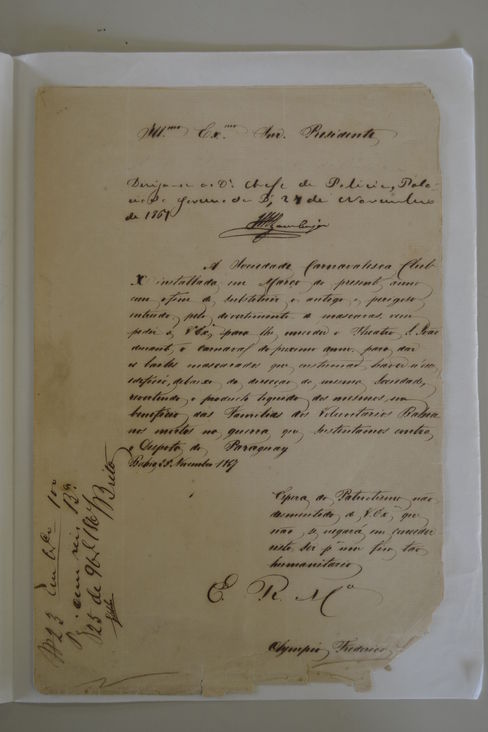 Ill.mo Ex.mo Snr. Presidente
Dirija-se ao Dr. Chefe de Policia, Pala-
cio do Governo da B, 27 de Novembro
de 1867
A Sociedade Carnavalesca Club
X installada em Março do presente anno
com o fim de substituir o antigo e perigoso
entrudo pelo divertimento de mascaras, vem
pedir a V. Exa. para lhe conceder o Theatro S. João
durante o carnaval do proximo anno, para dar
os bailes mascarados que costumam haver n'esse
edificio, debaixo da direcção da mesma Sociedade,
revertendo o producto liquido dos mesmos, em
beneficio das Familias dos Voluntarios Bahia-
nos mortos na guerra que sustentamos contra
o Despota do Paraguay
Bahia Novembro 1867
Espera do Patriotismo não
desmentido de V. Exa. que
não se negará em conceder
este for p um fim tão
humanitario
E. R. M.ce
Olympio Frederico
Nº 23 100
Pg. cem reis. Ba.
25 de 9br. de 1867
Brito